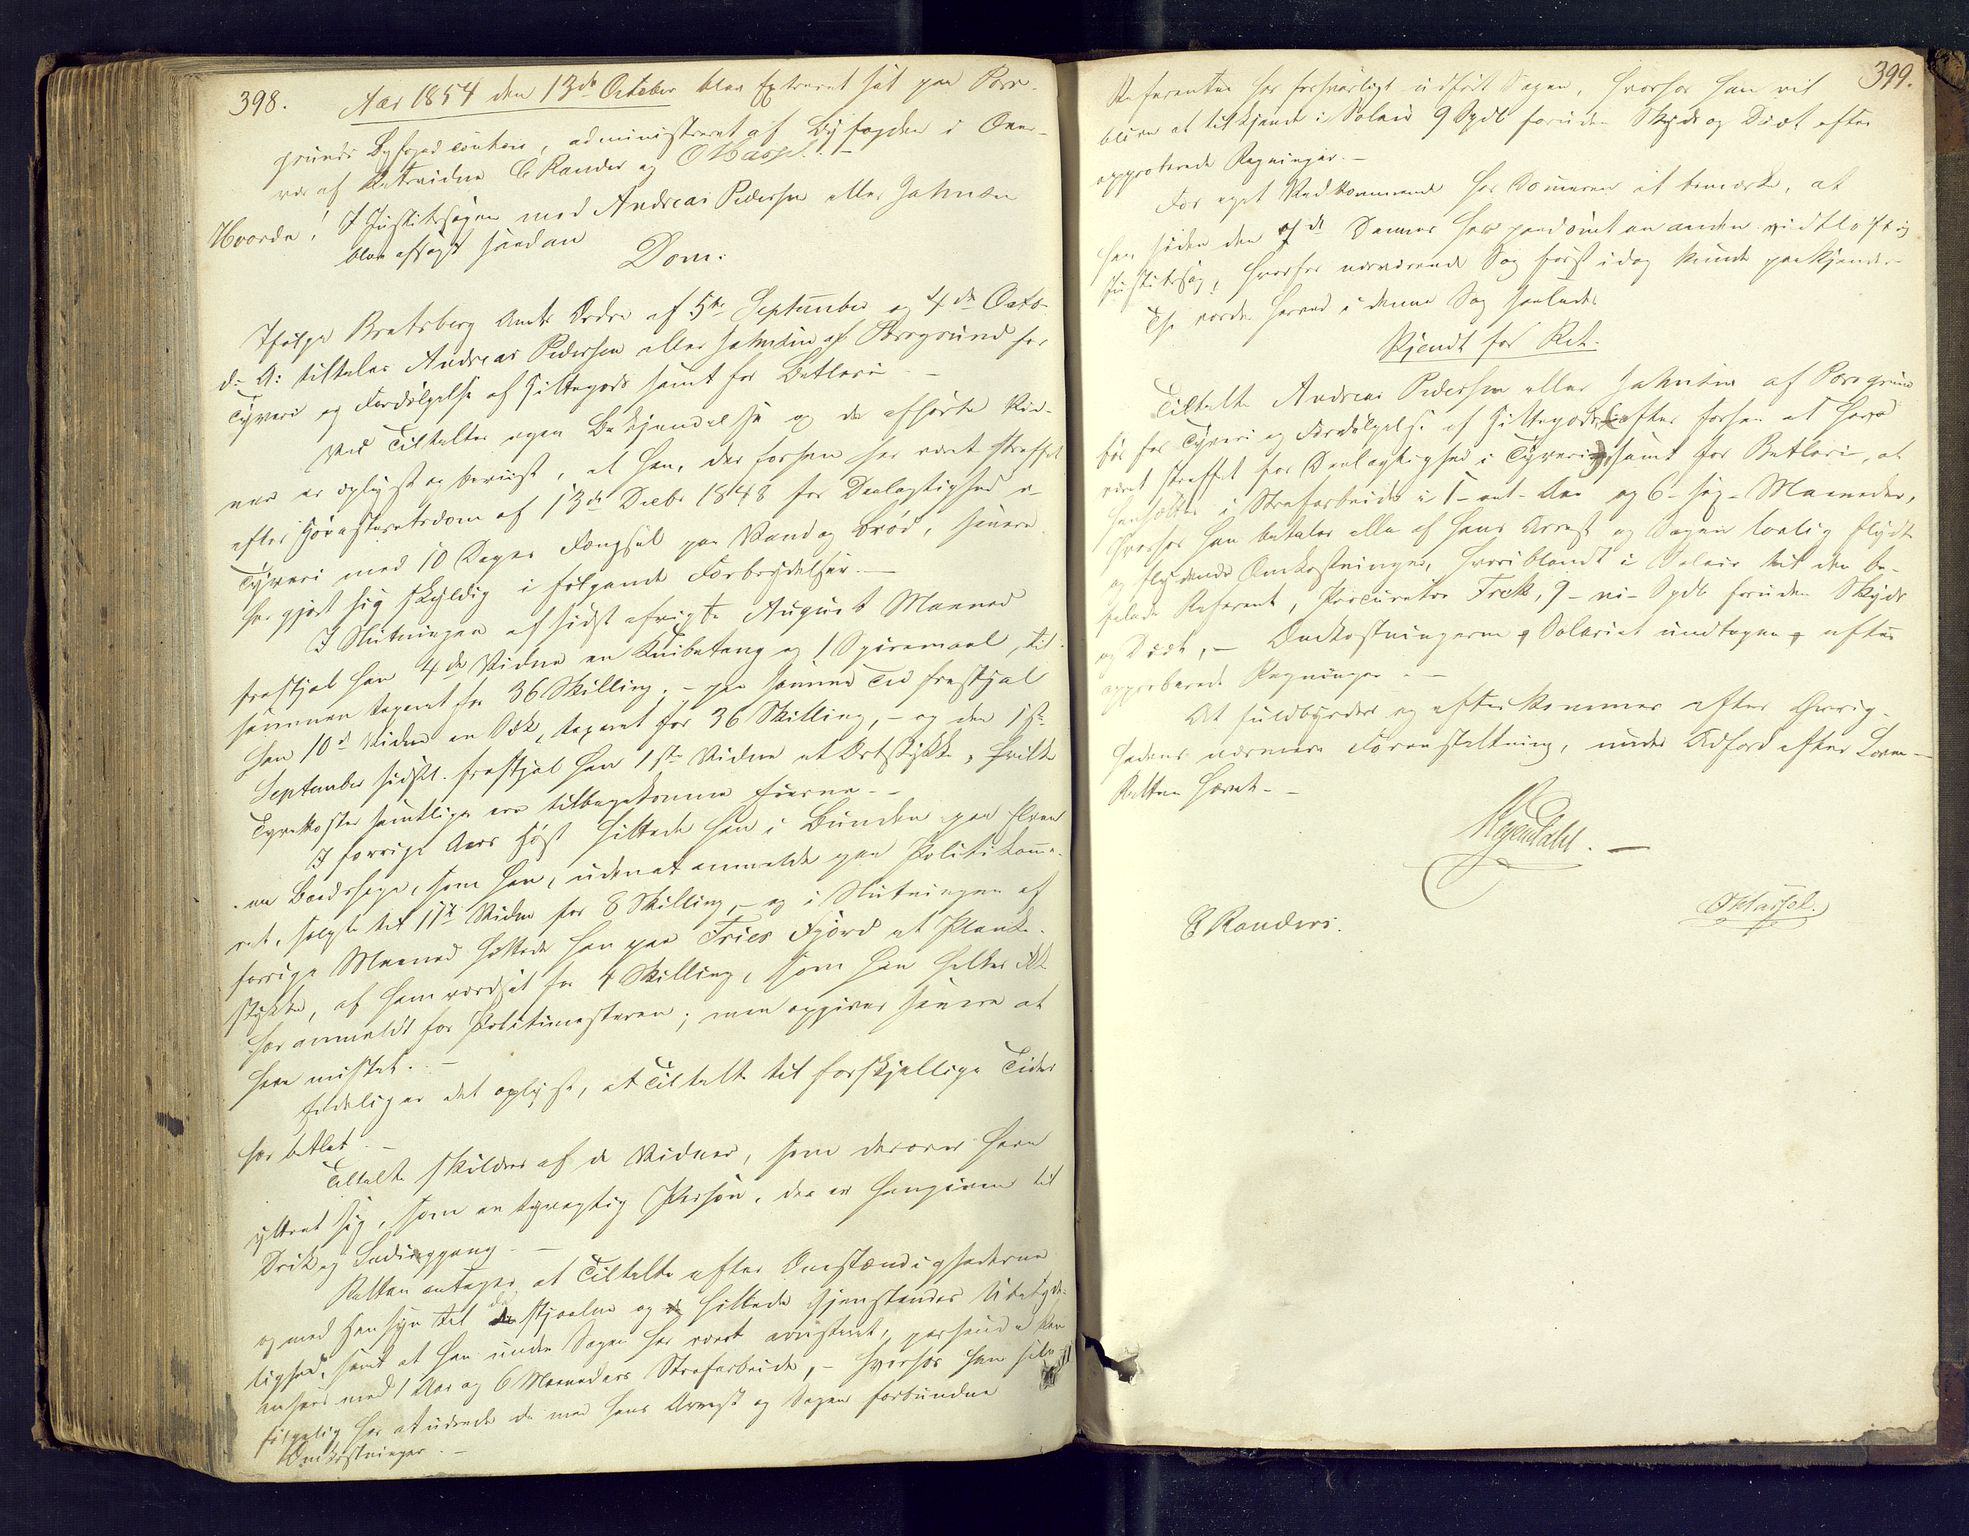 398.
Aar 1854 den 13de October blev Extraret sat paa Pors-
grunds Byfogedcontoir, administreret af Byfogden i Over-
vær af Retsvidne C Rander og O Hassel. —
Hvorda! I Justitssagen mod Andreas Pedersen eller Jahnsen
blev afsagt saadan
Dom:
Ifølge Bratsberg Amts Ordre af 5te September og 4de Octo-
d: A: tiltales Andreas Pedersen eller Jahnsen af Porsgrund for
Tyveri og Fordølgelse af Hittegods samt for Betleri. —
Ved Tiltaltes egen Bekjendelse og de afhørte Vid-
ner er oplyst og beviist, at han, der forhen har været straffet
efter Høiesteretsdom af 13de Decbr 1848 for Deelagtighed i
Tyveri med 10 Dages Fængsel paa Vand og Brød, senere
har gjort sig skyldig i følgende Forbrydelser. —
I Slutningen af sidst afvigte August Maaned
frastjal han 4de Vidne en Knibetang og 1 Spiremaal, til-
sammen taxeret for 36 Skilling, — paa samme Tid frastjal
han 10de Vidne en Øxe, taxeret for 36 Skilling, — og den 1ste
September sidstl. frastjal han 1ste Vidne et Ostestykke, hvilke
Tyvekoster samtlige ere tilbagekomne Eierne. —
I forrige Aars Høst hittede han i Bunden paa Elven
en Baadshage, som han, uden at anmelde paa Politikamme-
ret, solgte til 11te Vidne for 8 Skilling, — og i Slutningen af
forrige Maaned hittede han paa Fries Fjord et Planke-
stykke, af ham værdsat for 4 Skilling, som han heller ikke
har anmeldt for Politimesteren; men opgiver senere at
have mistet. —
Endelig er det oplyst, at Tiltalte til forskjellige Tider
har betlet. —
Tiltalte skildres af de Vidner, som derover have
yttret sig, som en tyvagtig Person, der er hengiven til
Drik og Lediggang. —
Retten antager, at Tiltalte efter Omstændighederne
og med Hensyn til de stjaalne og hittede Gjenstandes Ubetyde-
lighed, samt at han under Sagen har været arresteret, passende kan
ansees med 1 Aar og 6 Maaneders Strafarbeide, — hvorhos han selv-
følgelig har at udrede de med hans Arrest og Sagen forbundne
Omkostninger. —
399.
Referenten har forsvarligt udført Sagen, hvorfor han vil
blive at tilkjende i Salair 9 Spdl foruden Skyds og Diæt efter
approberede Regninger. —
For eget Vedkommende har Dommeren at bemærke, at
han siden den 7de Dennes har paadømt en anden vidtløftig
Justitssag, hvorfor nærværende Sag først idag kunde paakjendes
Thi vorder herved i denne Sag saaledes
Kjendt for Ret:
Tiltalte Andreas Pedersen eller Jahnsen af Porsgrund
bør for Tyveri og Fordølgelse af Hittegods (efter forhen at have
været straffet for Deelagtighed i Tyveri) samt for Betleri, at
hensættes i Strafarbeide i 1 — eet — Aar og 6 — sex — Maaneder,
hvorhos han betaler alle af hans Arrest og Sagen lovlig flydte
og flydende Omkostninger, hvoriblandt i Salair til den be-
falede Referent, Procurator Freek, 9 — ni — Spdl foruden Skyds
og Diæt, — Omkostningerne, Salariet undtagen, efter
approberede Regninger. —
At fuldbyrdes og efterkommes efter Øvrig-
hedens nærmere Foranstaltning, under Adfærd efter Loven —
Retten hævet. —
C Randers.
O Hassel.